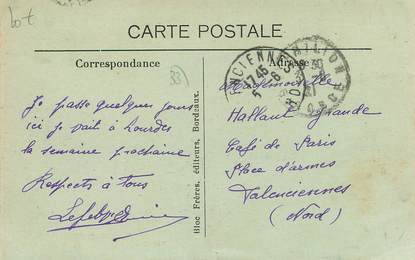 lot
CARTE POSTALE
Correspondance
Adresse
33
Je passe quelques jours
ici je vait à Lourdes
la semaine prochaine
Respects à tous
Lefebvre
Bloc Frères, éditeurs, Bordeaux.
Mademoiselle
Hallant Grande
Café de Paris
Place d'armes
Valenciennes
(Nord)